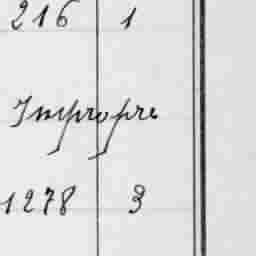 216 1
Impropre
1278 3